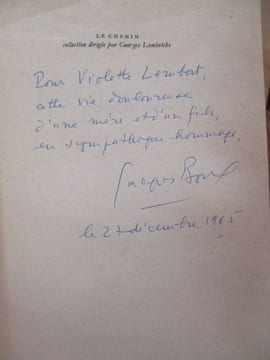 LE CHEMIN
collection dirigée par Georges Lambrichs
Pour Violette Lembert,
cette vie douloureuse
d'une mère et d'un fils,
en sympathique hommage,
Jacques Borel
le 27 décembre 1965